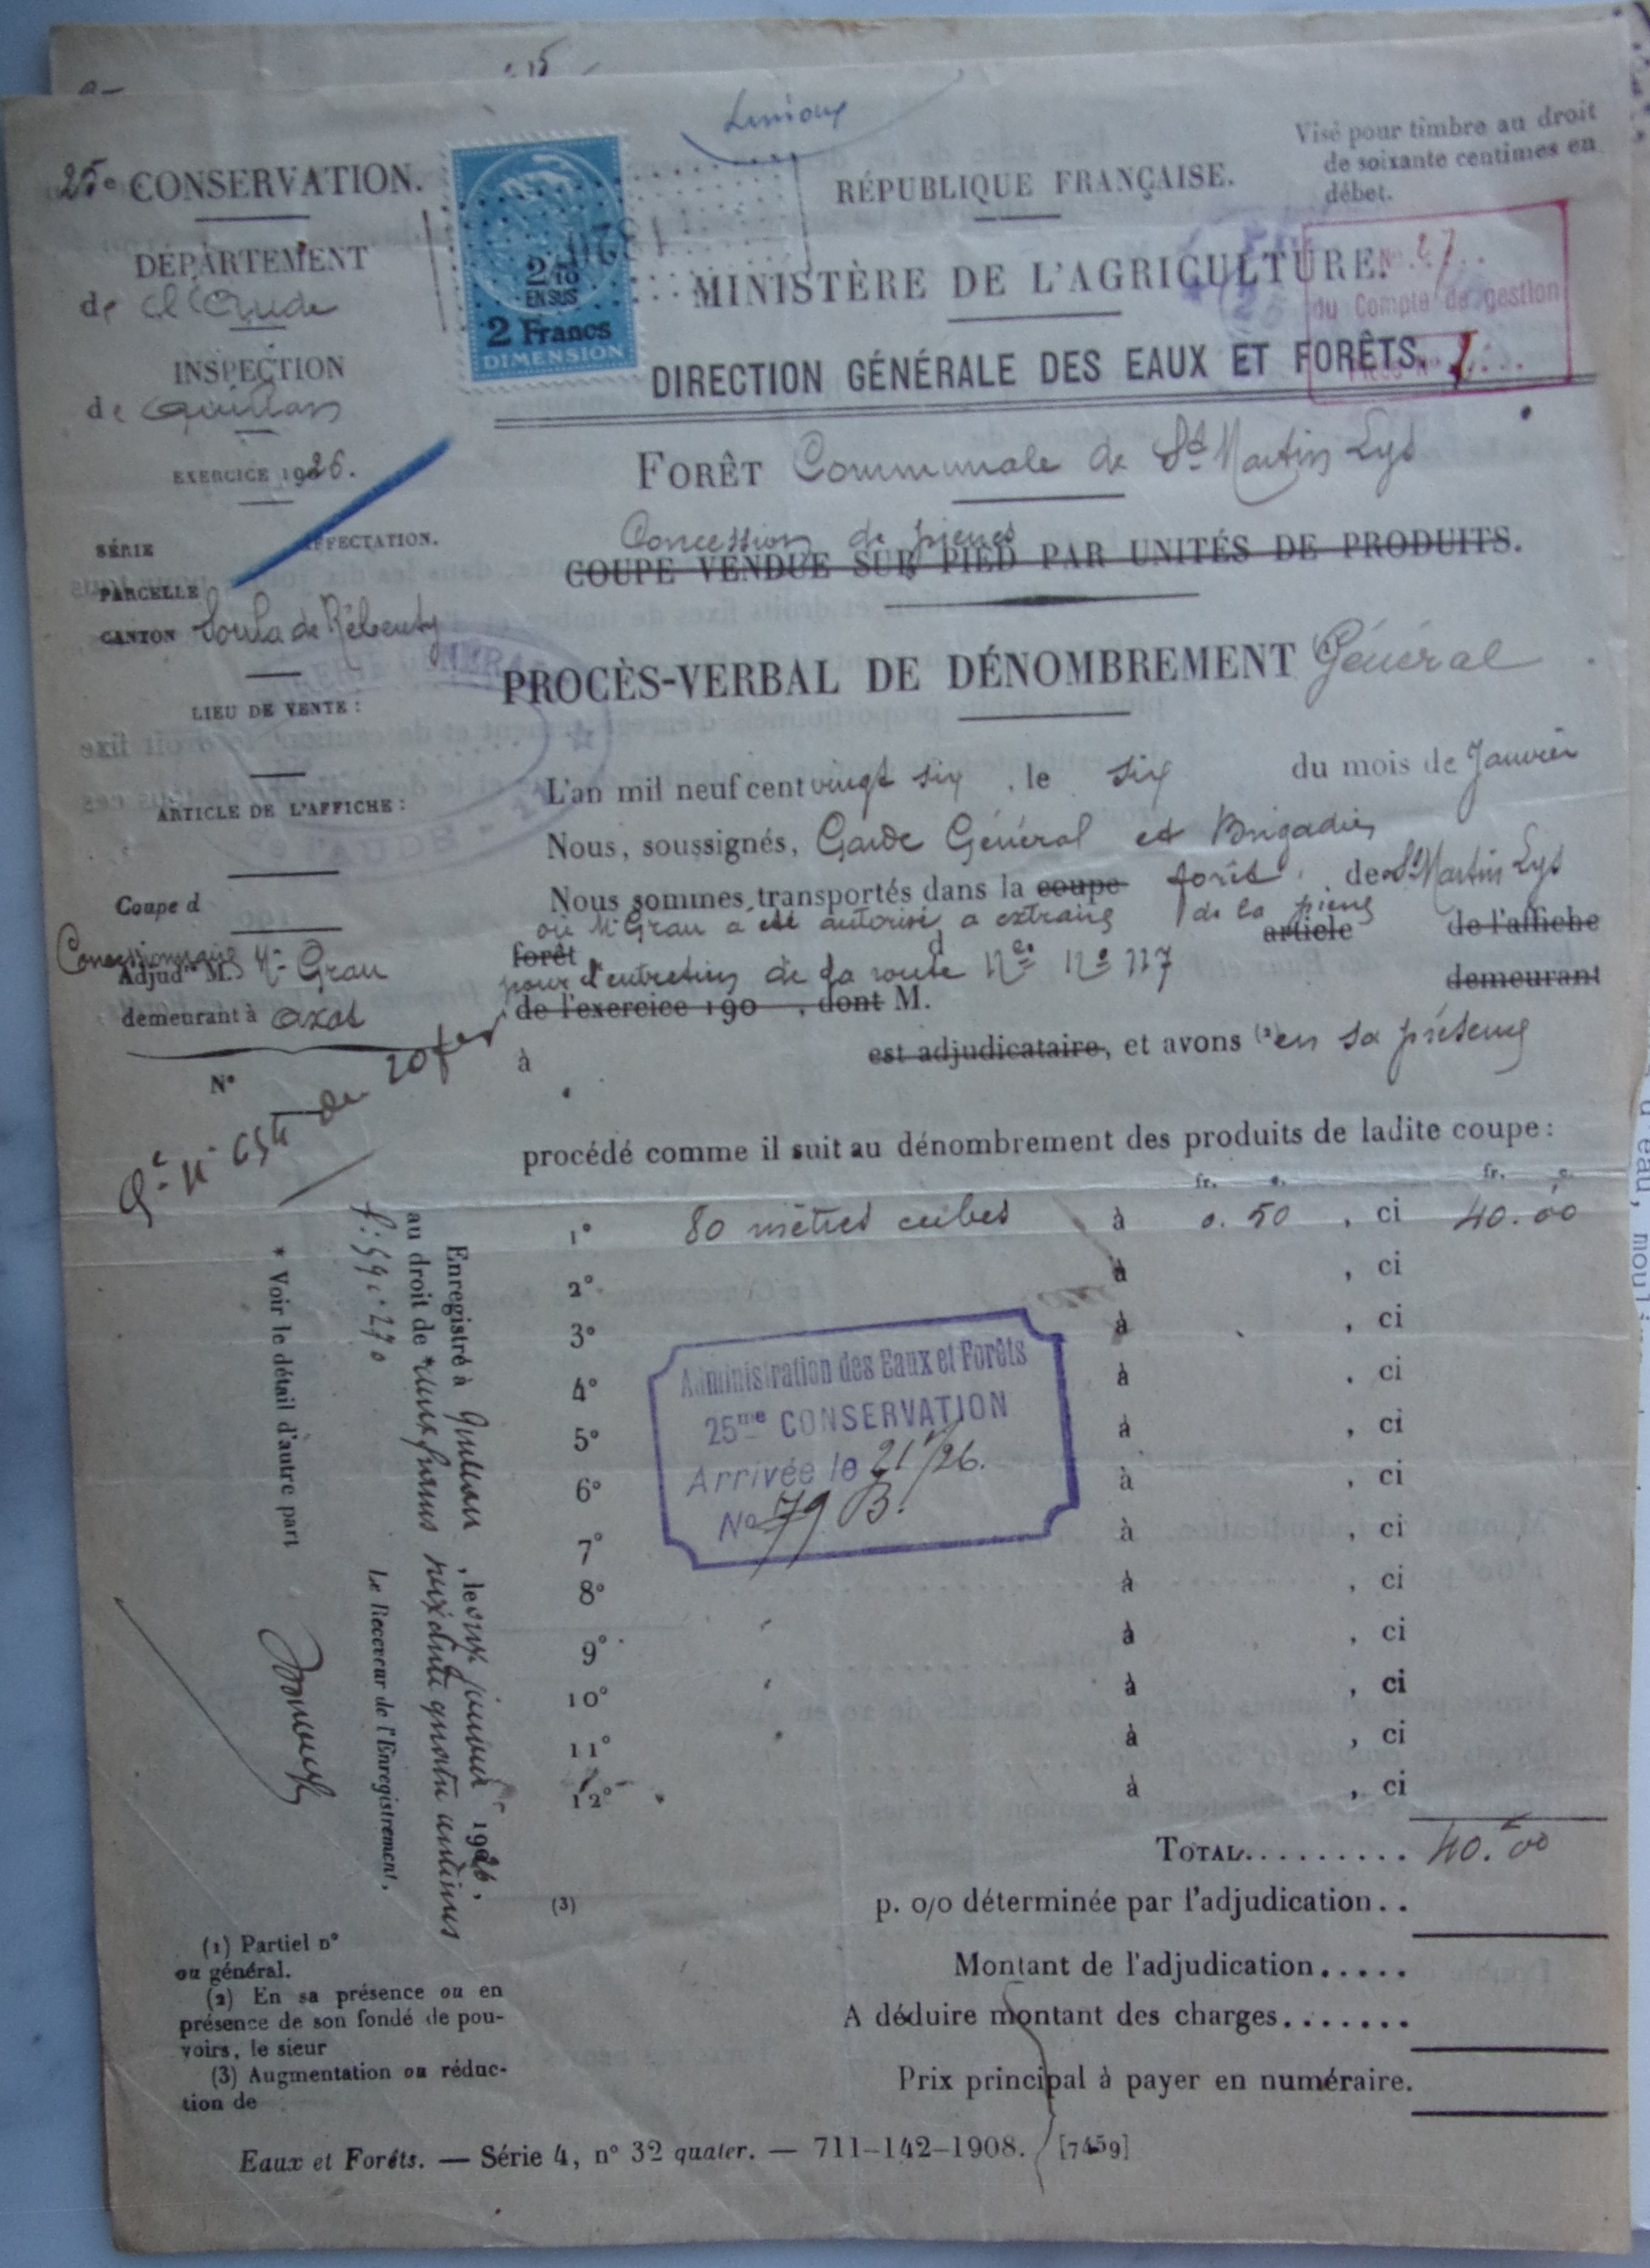 Limoux
Visé pour timbre au droit
de soixante centimes en
débet.
25e CONSERVATION.
DÉPARTEMENT
de l'Aude
INSPECTION
de Quillan
EXERCICE 1926.
SÉRIE
AFFECTATION.
PARCELLE
CANTON Soula de Rébenty
LIEU DE VENTE :
ARTICLE DE L'AFFICHE :
Coupe d
Concessionnaire
Adjudre M. Mr Grau
demeurant à Axat
N°
2/10
EN SUS
2 Francs
DIMENSION
RÉPUBLIQUE FRANÇAISE.
MINISTÈRE DE L'AGRICULTURE.
DIRECTION GÉNÉRALE DES EAUX ET FORÊTS.
N° 27
du Compte de gestion
FORÊT Communale de St Martin Lys
Concession de pierres
COUPE VENDUE SUR PIED PAR UNITÉS DE PRODUITS.
PROCÈS-VERBAL DE DÉNOMBREMENT Général
L'an mil neuf cent vingt six, le six du mois de Janvier
Nous, soussignés, Garde Général et Brigadier
Nous sommes transportés dans la coupe forêt de St Martin Lys
où Mr Grau a été autorisé a extraire de la pierre
forêt article de l'affiche
pour l'entretien de la route Nle N° 117
de l'exercice 190 , dont M. demeurant
à est adjudicataire, et avons (2) en sa présence
procédé comme il suit au dénombrement des produits de ladite coupe :
fr. c. fr. c.
1° 80 mètres cubes à 0.50 , ci 40.00
2° à , ci
3° à , ci
4° à , ci
5° à , ci
6° à , ci
7° à , ci
8° à , ci
9° à , ci
10° à , ci
11° à , ci
12° à , ci
Administration des Eaux et Forêts
25me CONSERVATION
Arrivée le 21/1/26.
No 79 B.
TOTAL......... 40.00
(3) p. 0/0 déterminée par l'adjudication..
Montant de l'adjudication.....
A déduire montant des charges.......
Prix principal à payer en numéraire.
Enregistré à Quillan, le onze janvier 1926,
au droit de *
Le Receveur de l'Enregistrement,
* Voir le détail d'autre part
(1) Partiel n°
ou général.
(2) En sa présence ou en
présence de son fondé de pou-
voirs, le sieur
(3) Augmentation ou réduc-
tion de
Eaux et Forêts. — Série 4, n° 32 quater. — 711-142-1908. [7459]